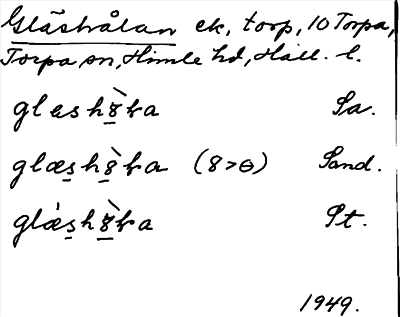 Gläshålan ek, torp, 10 Torpa,
Torpa sn, Himle hd, Hall. l.
glashȣ̀ka Sa.
glæshȣ̀ka (8>ɵ) Sand.
glæ̀shȣ̀ka St.
1949.